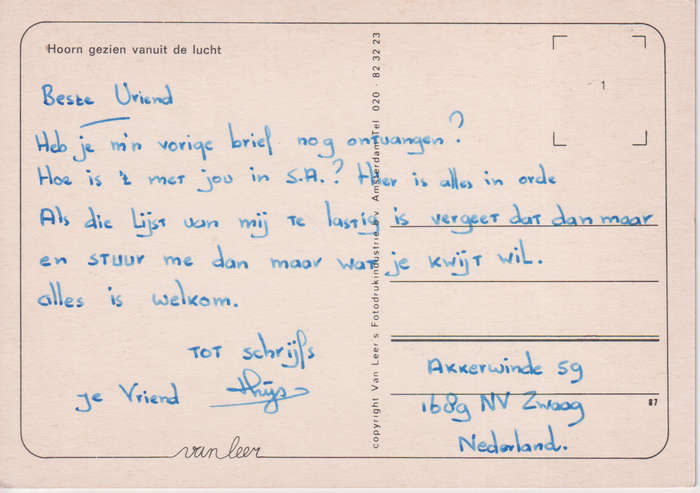 Hoorn gezien vanuit de lucht
1
Beste Vriend
Heb je m'n vorige brief nog ontvangen?
Hoe is 't met jou in S.A.? Hier is alles in orde
Als die lijst van mij te lastig is vergeet dat dan maar
en stuur me dan maar wat je kwijt wil.
alles is welkom.
Tot schrijfs
je Vriend Thijs
van leer
copyright Van Leer's Fotodrukindustrie b.v. Amsterdam Tel 020 - 82 32 23
Akkerwinde 59
1689 NV Zwaag
Nederland.
87